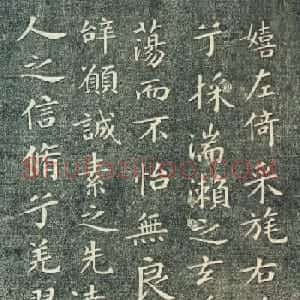 嬉左倚采旄右
兮採湍瀨之玄
蕩而不怡無良
辭願誠素之先
人之信脩兮羌